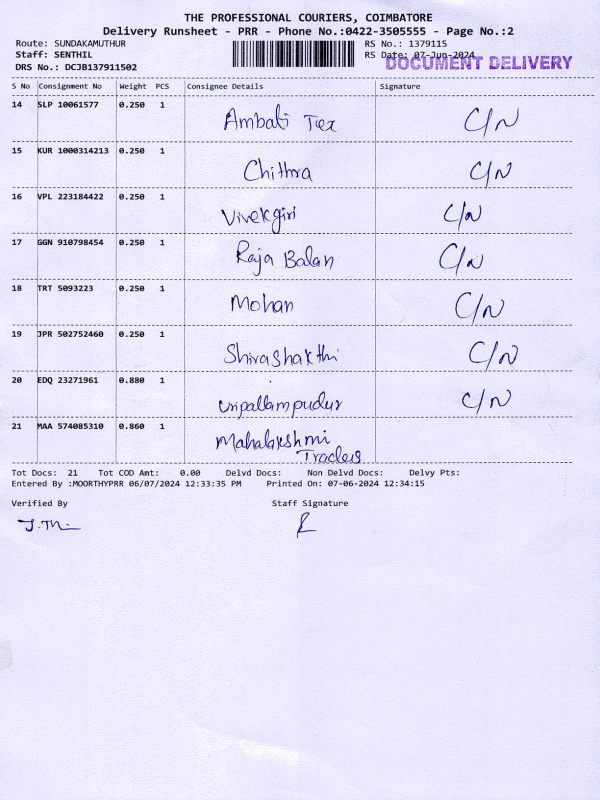 THE PROFESSIONAL COURIERS, COIMBATORE
Delivery Runsheet - PRR - Phone No.:0422-3505555 - Page No.:2
Route: SUNDAKAMUTHUR RS No.: 1379115
Staff: SENTHIL RS Date: 07-Jun-2024
DRS No.: DCJB137911502 DOCUMENT DELIVERY
S No Consignment No Weight PCS Consignee Details Signature
14 SLP 10061577 0.250 1 Ambati Tex C/N
15 KUR 1000314213 0.250 1 Chithra C/N
16 VPL 223184422 0.250 1 Vivekgiri C/N
17 GGN 910798454 0.250 1 Raja Balan C/N
18 TRT 5093223 0.250 1 Mohan C/N
19 JPR 502752460 0.250 1 Shivashakthi C/N
20 EDQ 23271961 0.880 1 C/N
21 MAA 574085310 0.860 1 Mahalakshmi
Traders
Tot Docs: 21 Tot COD Amt: 0.00 Delvd Docs: Non Delvd Docs: Delvy Pts:
Entered By :MOORTHYPRR 06/07/2024 12:33:35 PM Printed On: 07-06-2024 12:34:15
Verified By Staff Signature